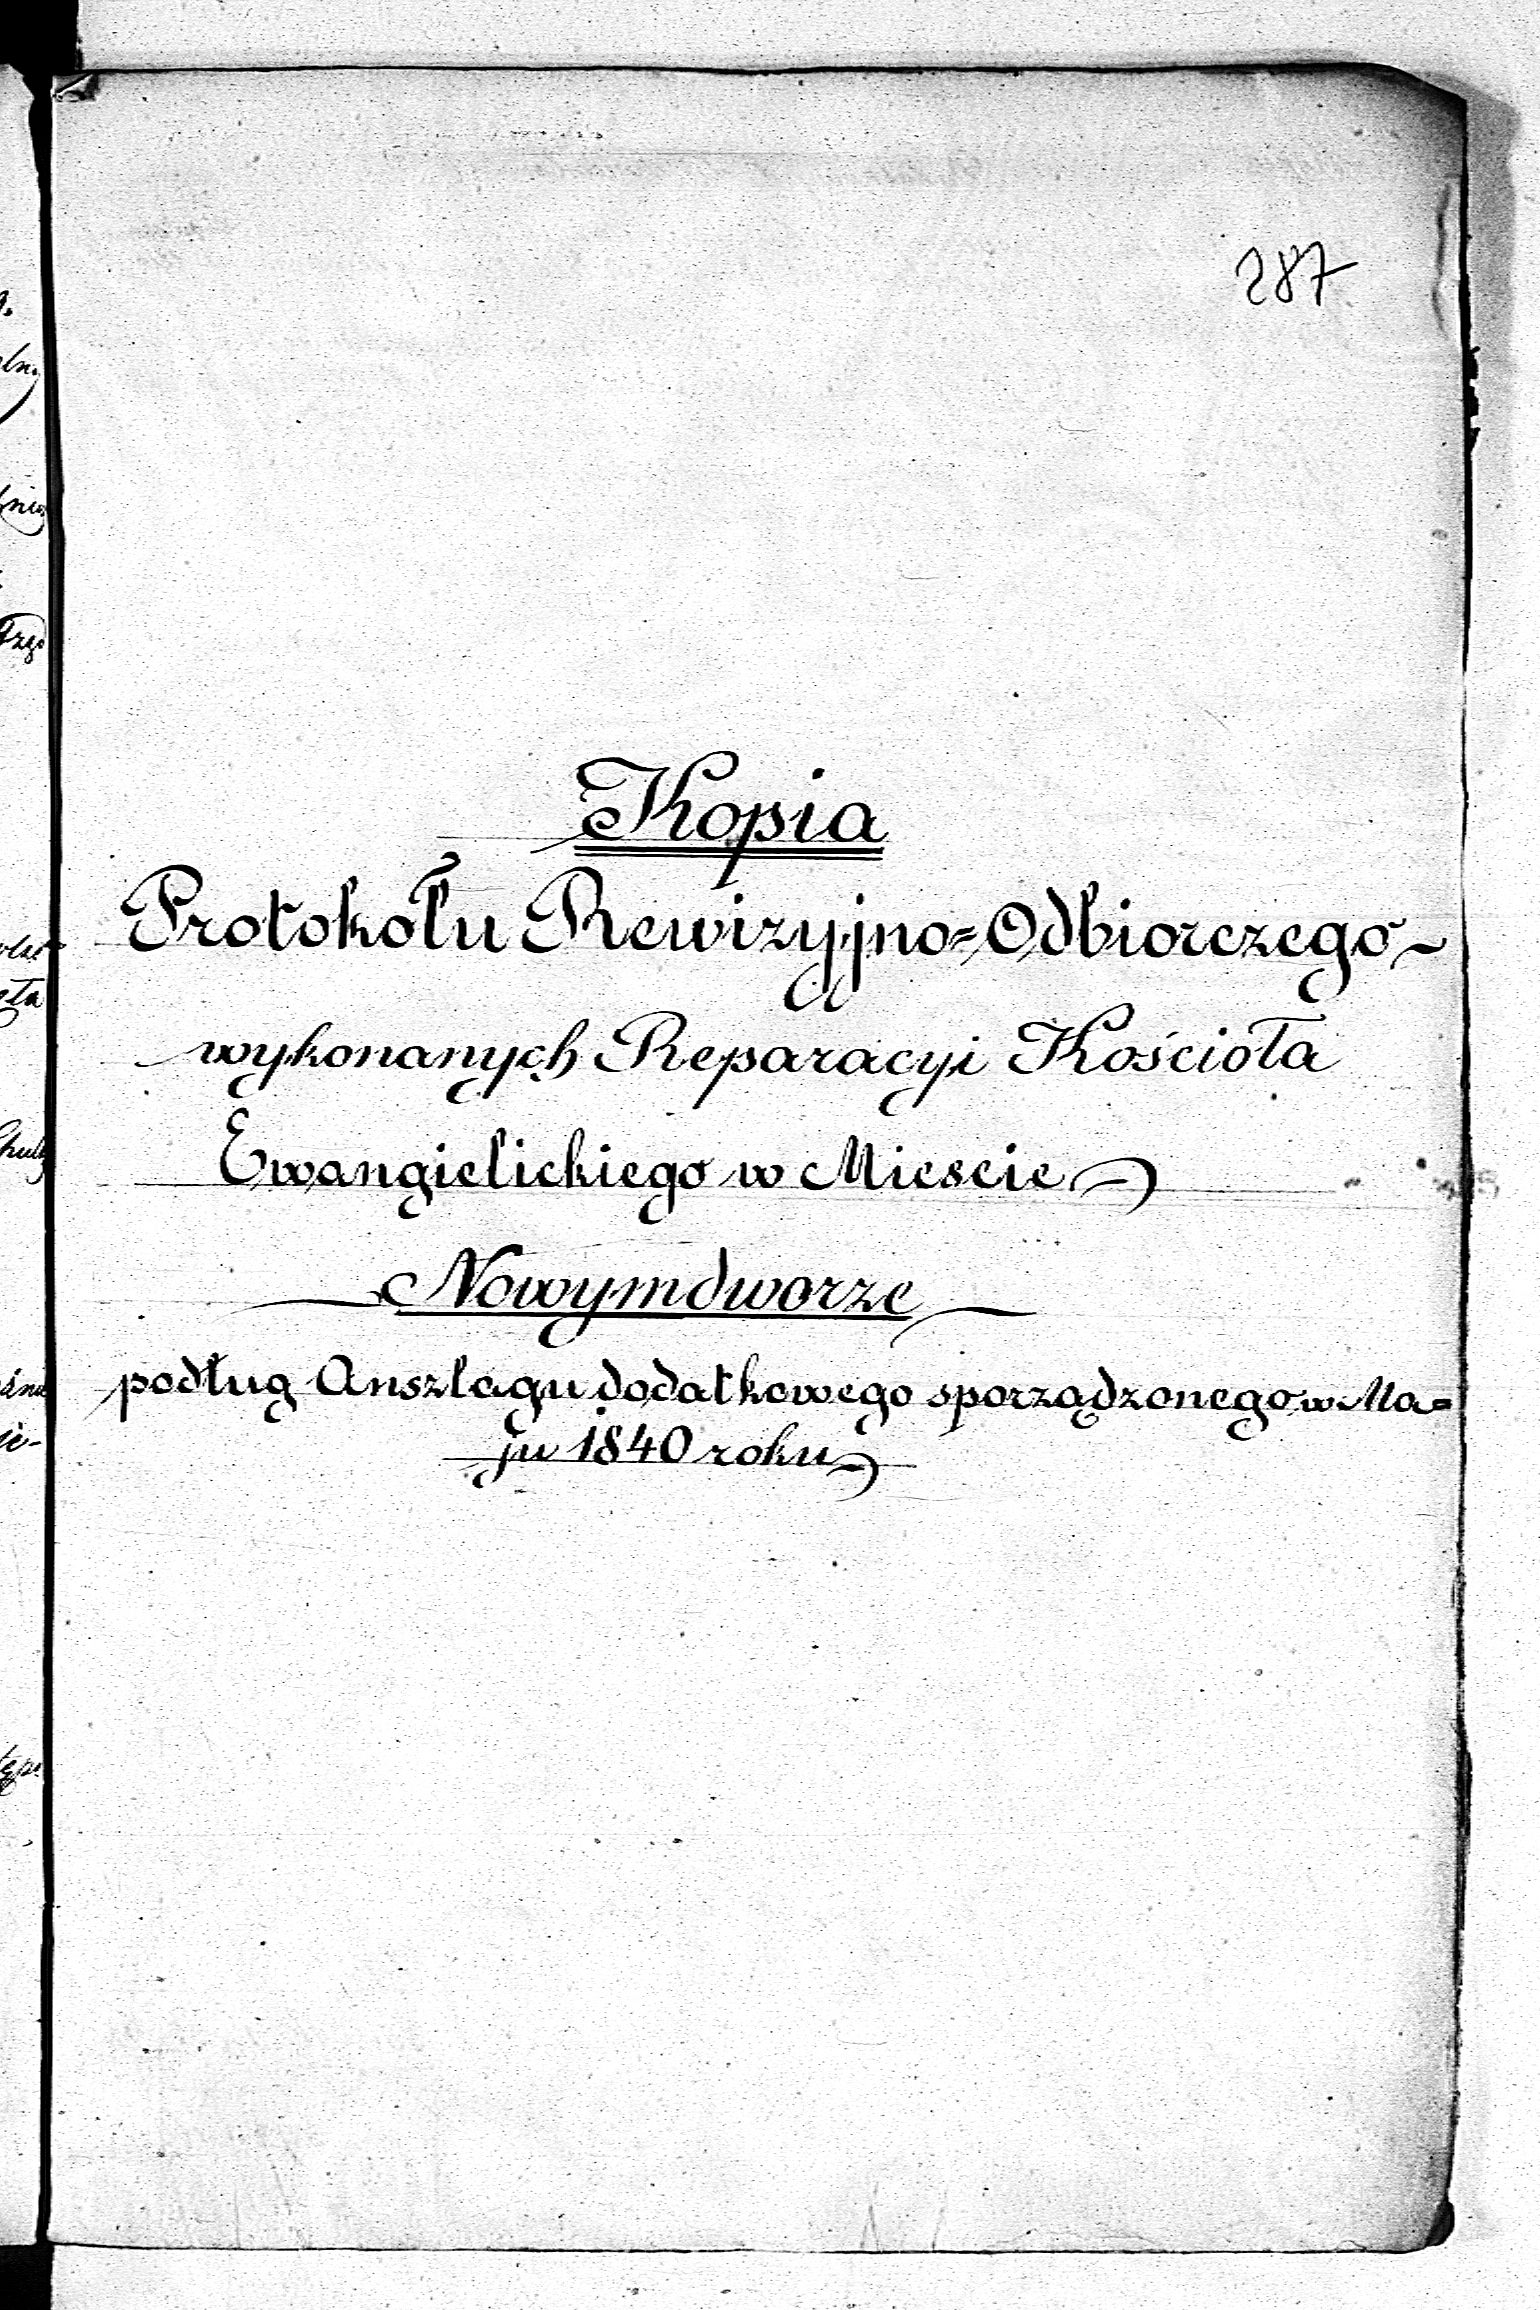 287
Kopia
Protokołu Rewizyjno=Odbiorczego
wykonanych Reparacyi Kościoła
Ewangielickiego w Miescie
Nowymdworze
podług Anszlagu dodatkowego sporządzonego w Ma=
ju 1840 roku